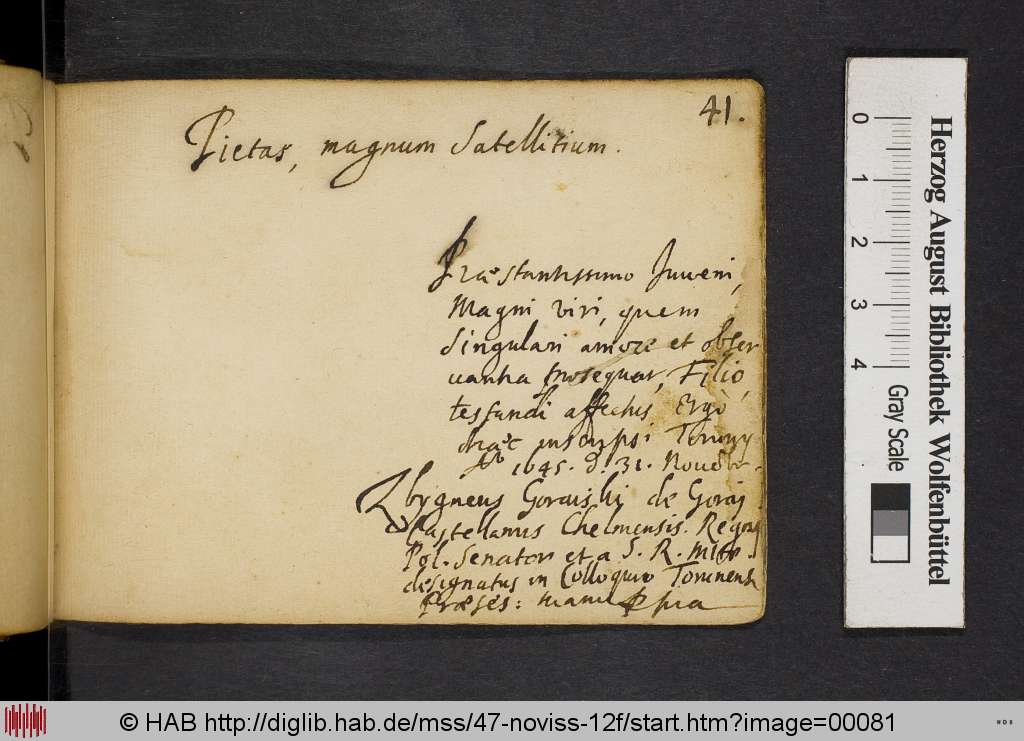 41.
Pietas, magnum Satellitium.
Præstantissimo Juveni,
Magni viri, quem
singulari amore et obser
vantia prosequor, Filio,
testandi affectus Ergò
hæc inscripsi Toruny
Aº 1645. d. 31. Novebr.
Zbygneus Goraiski de Goraj
Castellanus Chelmensis. Regni
Pol. Senator et a S. R. Mtte
designatus in Colloquio Torunensi
Præses: manu ppria
0 1 2 3 4
Herzog August Bibliothek Wolfenbüttel
Gray Scale
© HAB http://diglib.hab.de/mss/47-noviss-12f/start.htm?image=00081
WDB